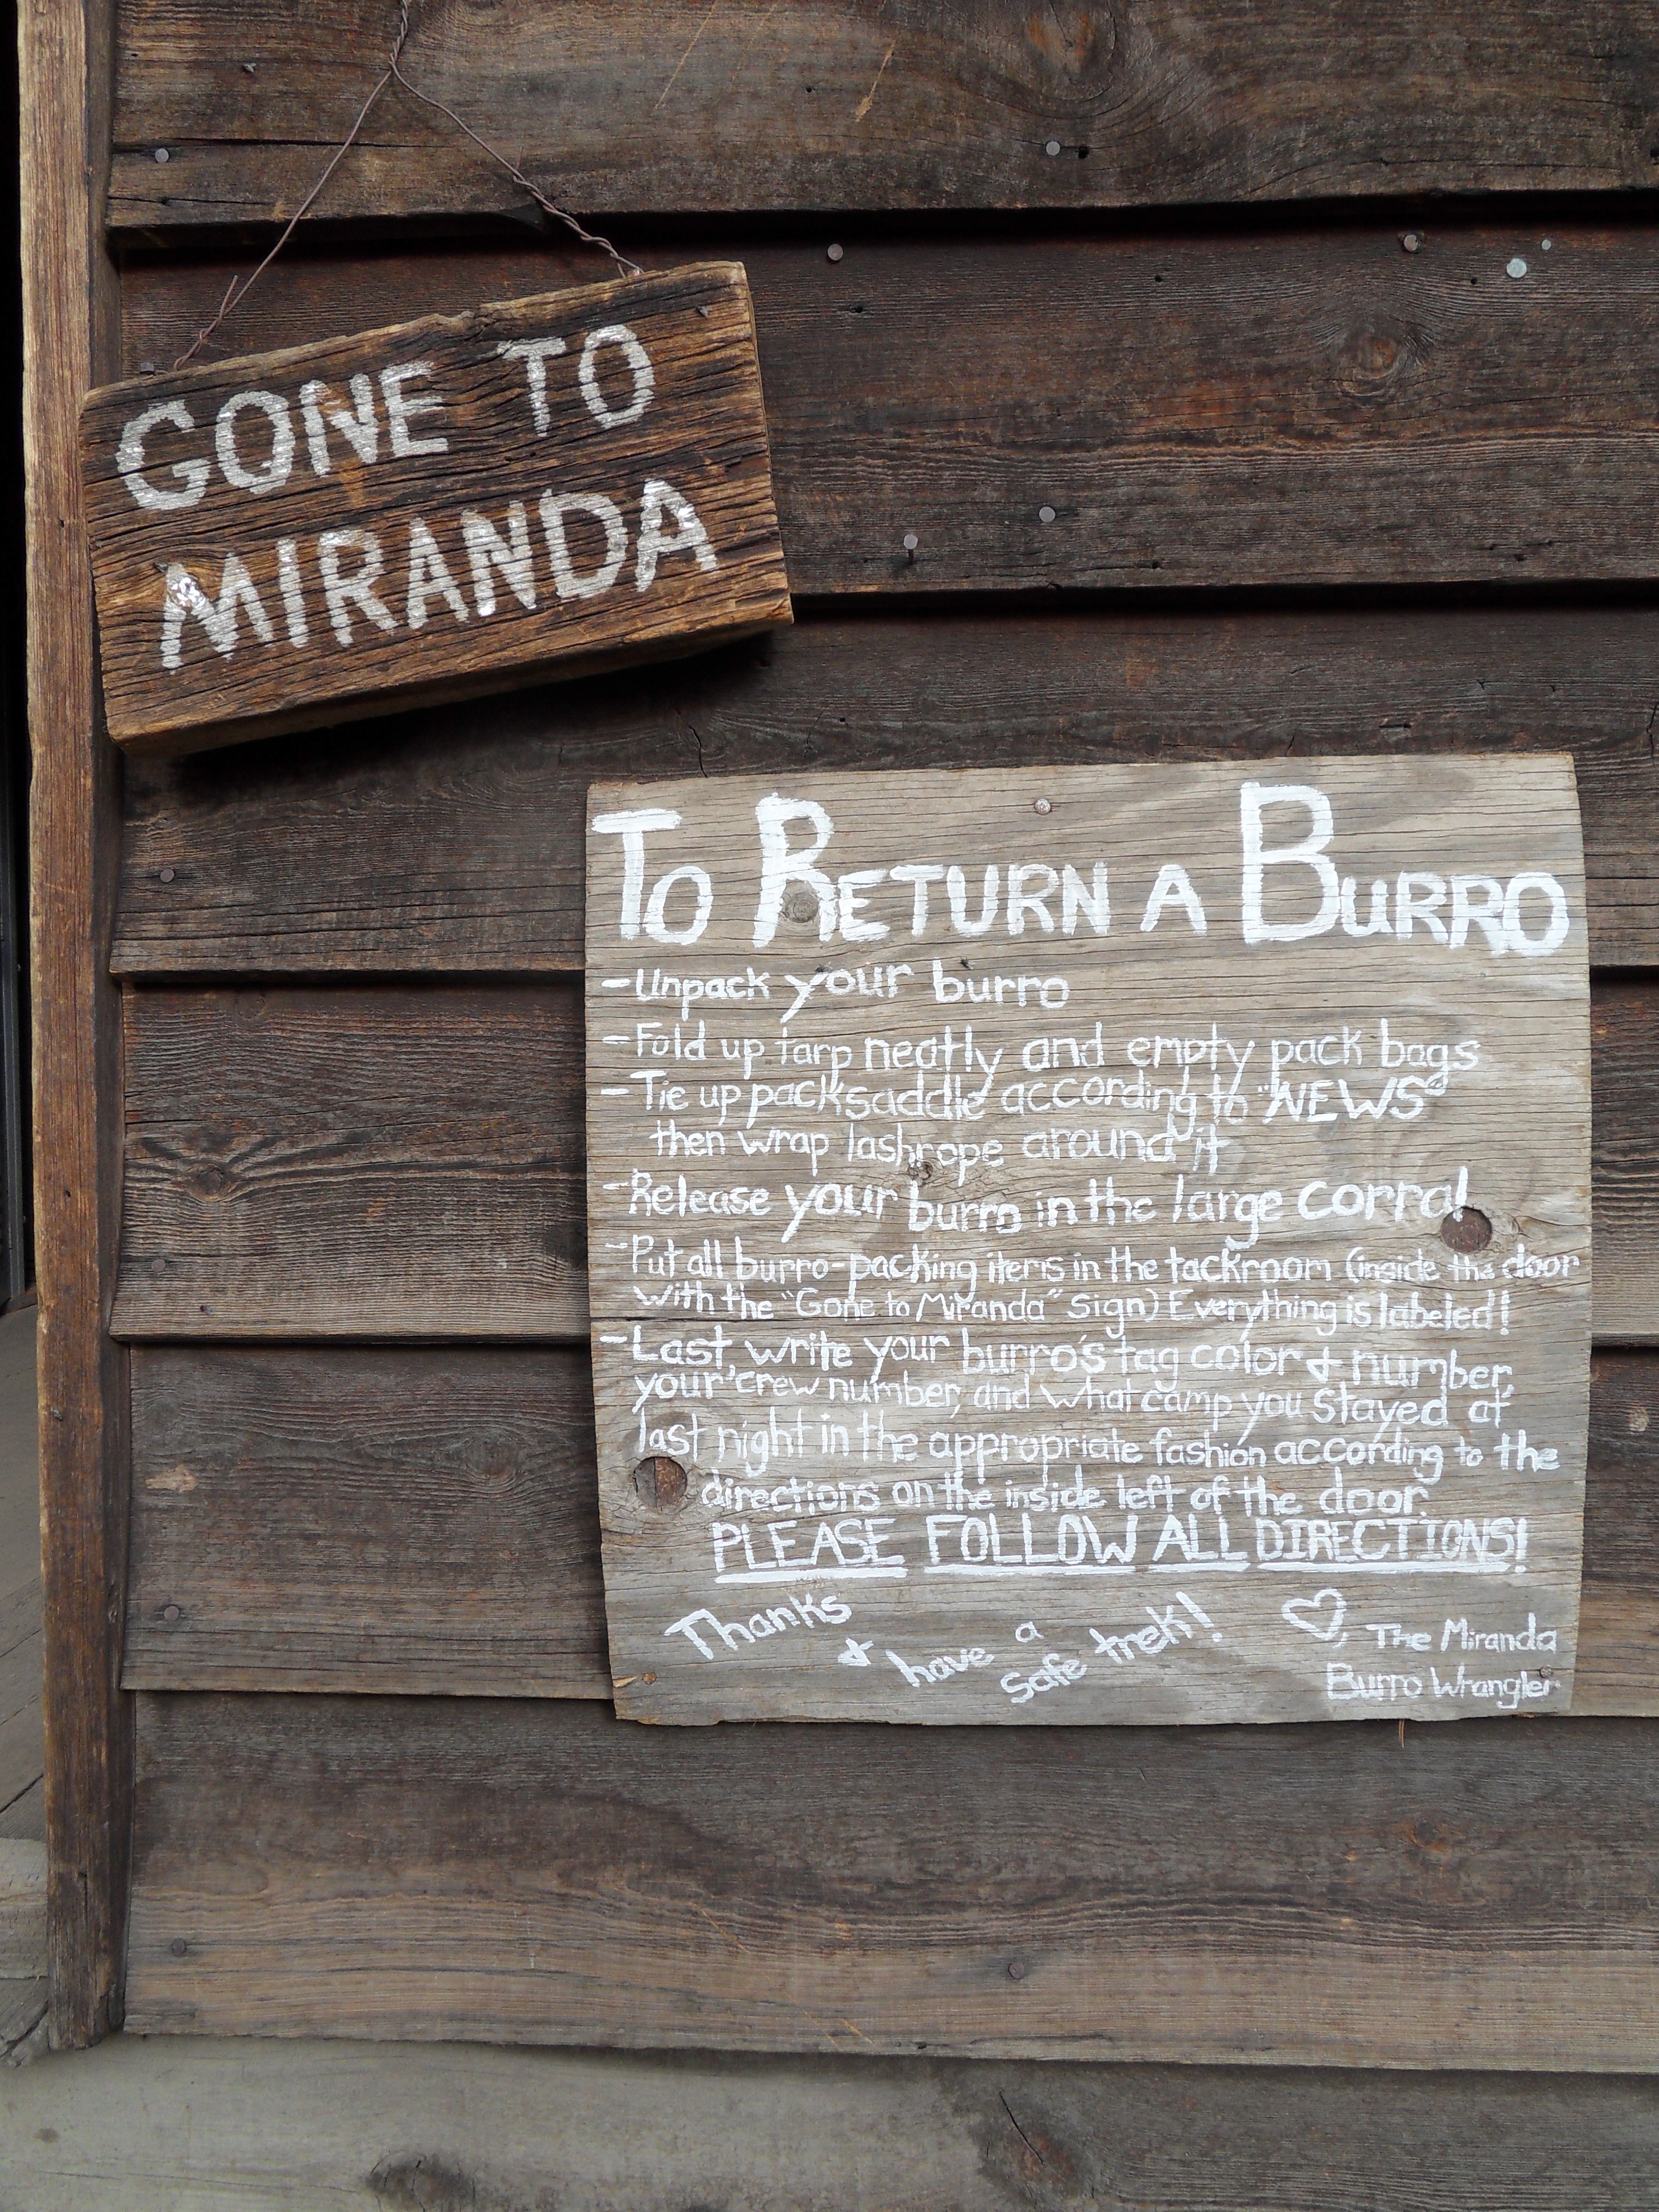 GONE TO
MIRANDA
TO RETURN A BURRO
-Unpack your burro
-Fold up tarp neatly and empty pack bags
-Tie up packsaddle according to "NEWS"
then wrap lashrope around it
-Release your burro in the large corral
-Put all burro-packing items in the tackroom (inside the door
with the "Gone to Miranda" sign) Everything is labeled!
-Last, write your burro's tag color & number,
your crew number, and what camp you stayed at
last night in the appropriate fashion according to the
directions on the inside left of the door.
PLEASE FOLLOW ALL DIRECTIONS!
Thanks & have a safe trek!
♡, The Miranda
Burro Wrangler